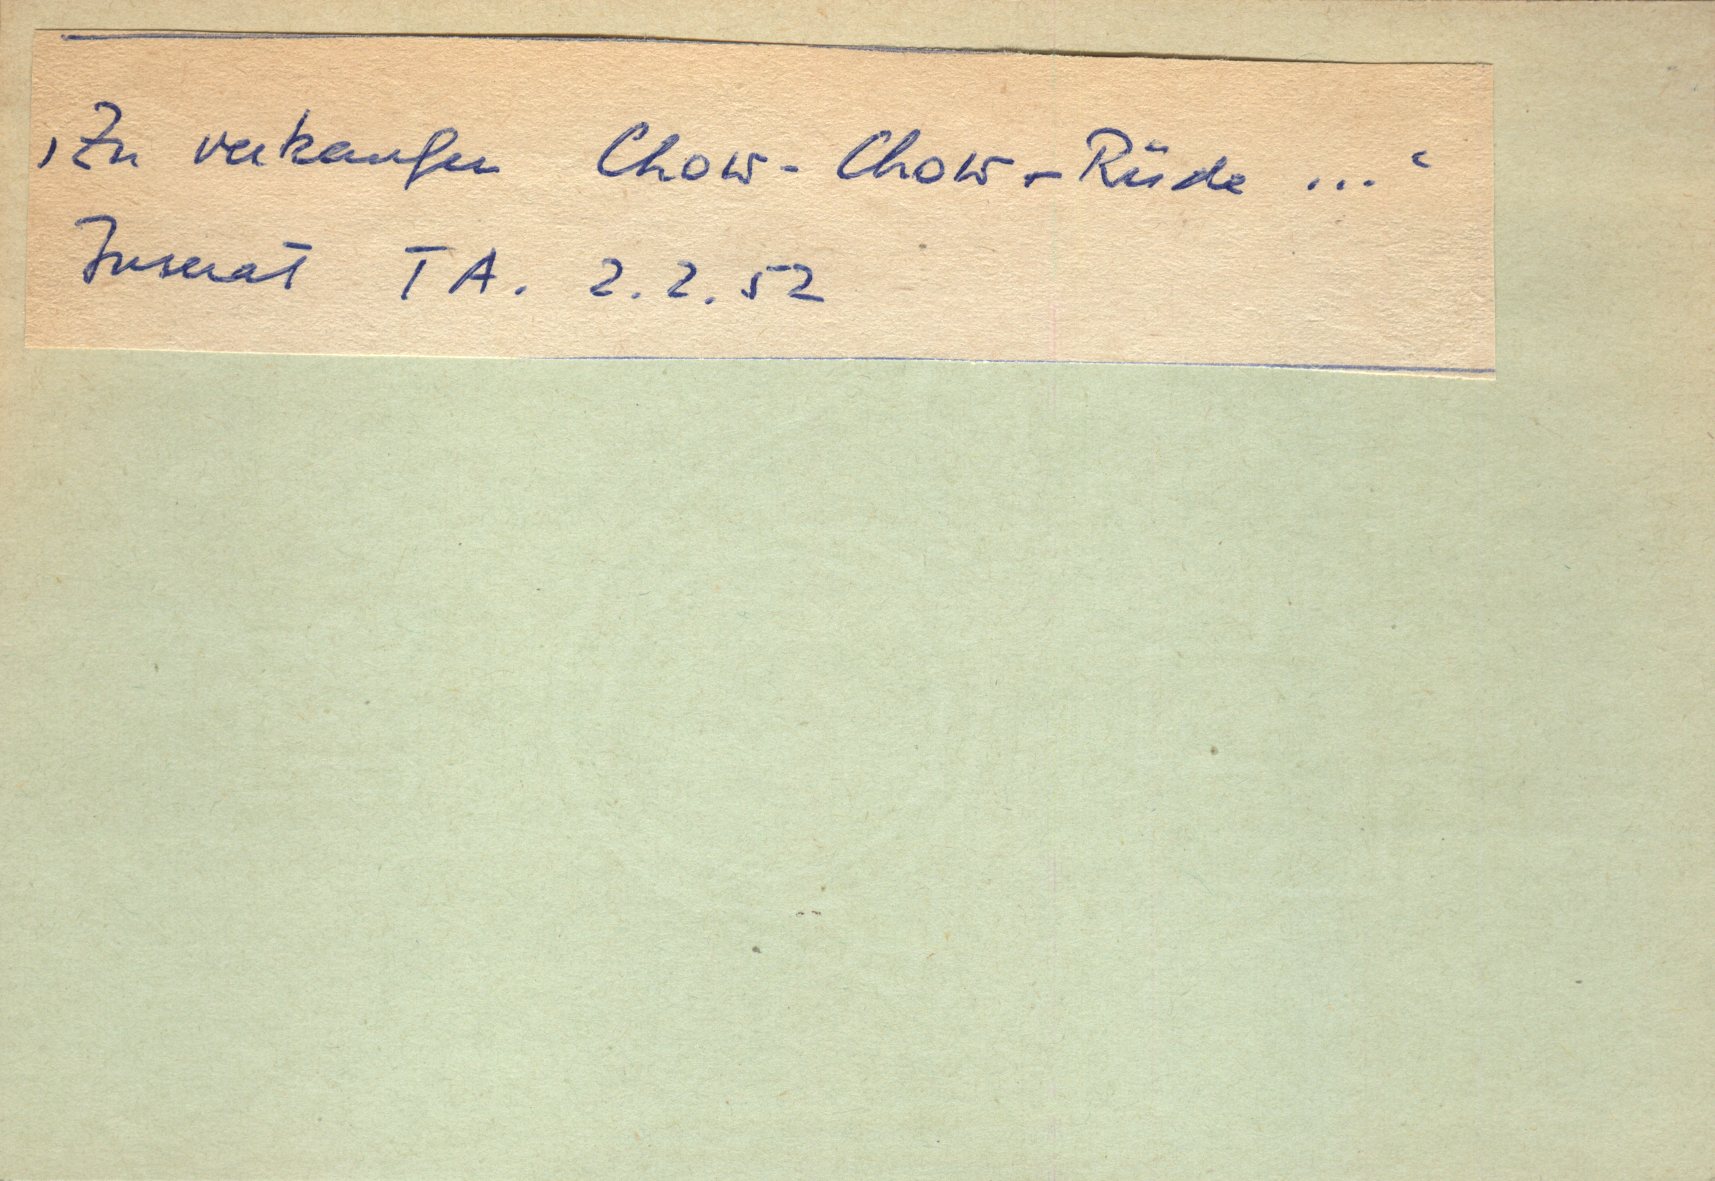 ‚Zu verkaufen Chow-Chow-Rüde ...‘
Inserat TA. 2.2.52